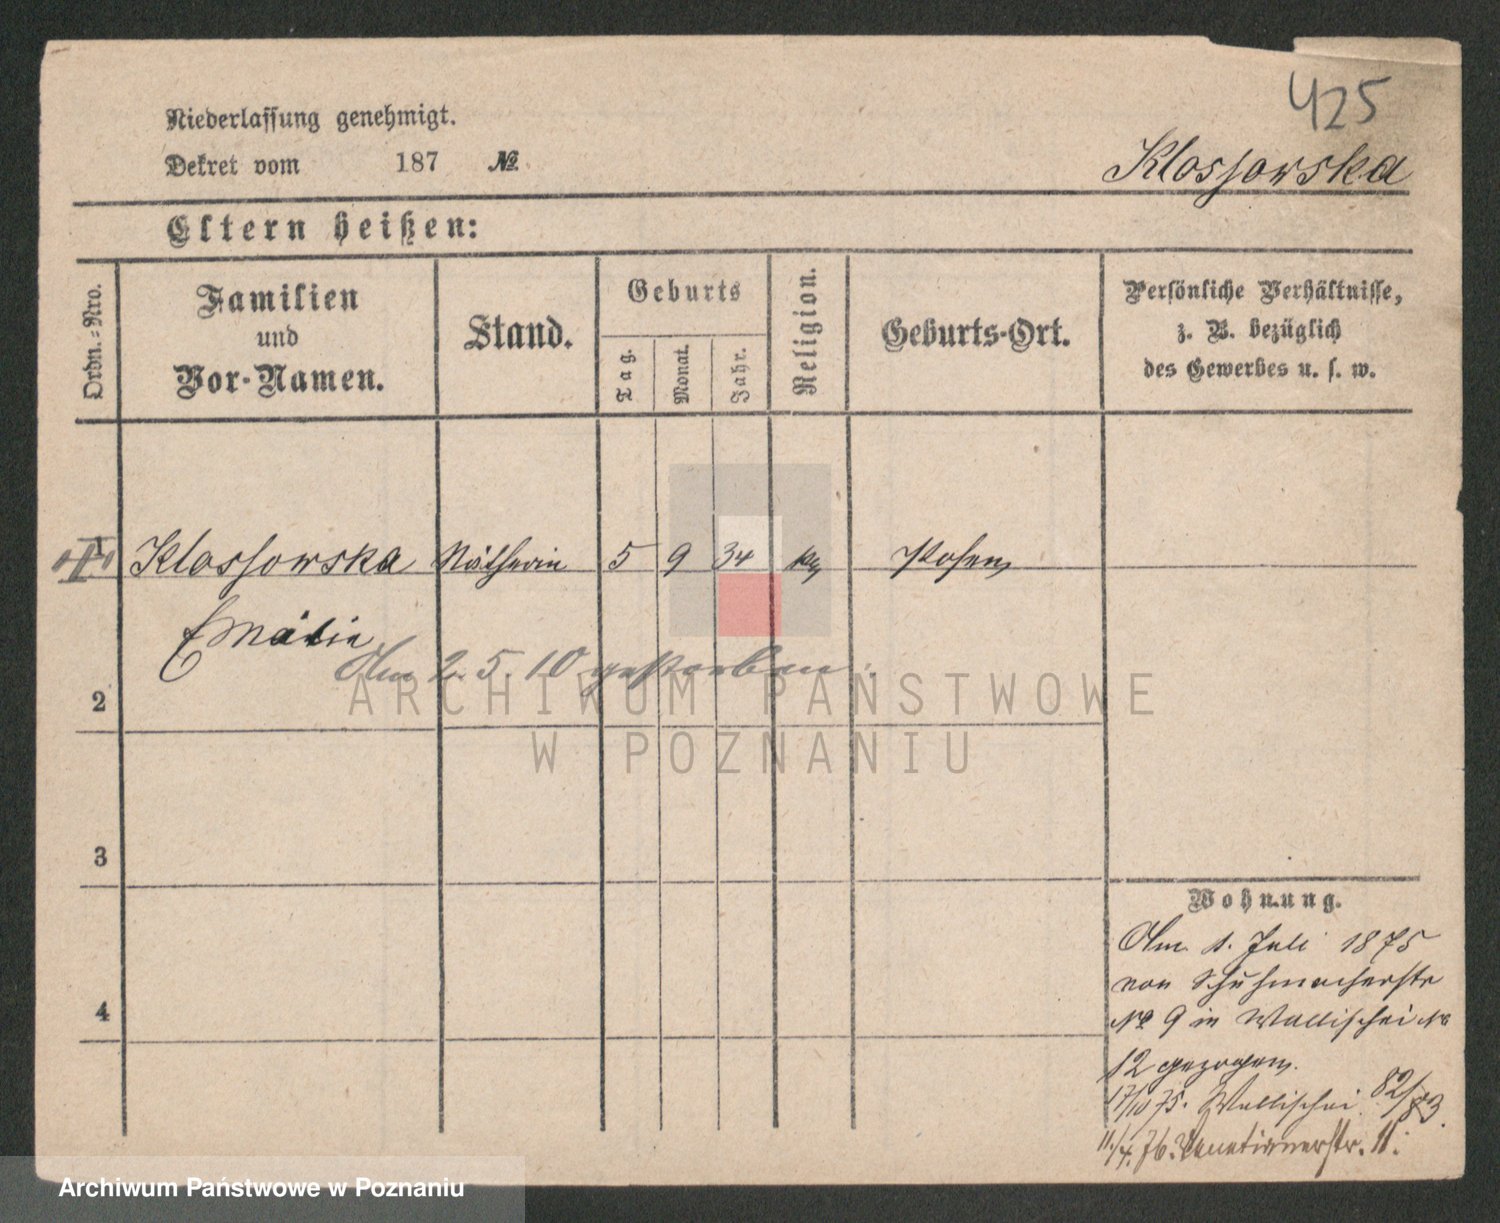 425
Niederlassung genehmigt.
Dekret vom 187 №
Klossowska
Eltern heißen:
Ordn.-Nro.
Familien
und
Vor-Namen.
Stand.
Geburts
Tag.
Monat.
Jahr.
Religion.
Geburts-Ort.
Persönliche Verhältnisse,
z. B. bezüglich
des Gewerbes u. s. w.
1 Klossowska Nätherin 5 9 34 Posen
Emalie
Am 2. 5. 10 gestorben.
2
3
4
Wohnung.
Am 1. Juli 1875
von Schuhmacherstr
№ 9 in Wallischei №
12 gezogen.
17/10 75. Wallischei 82/83.
11./4. 76. Venetianerstr. 11.
ARCHIWUM PAŃSTWOWE
W POZNANIU
Archiwum Państwowe w Poznaniu